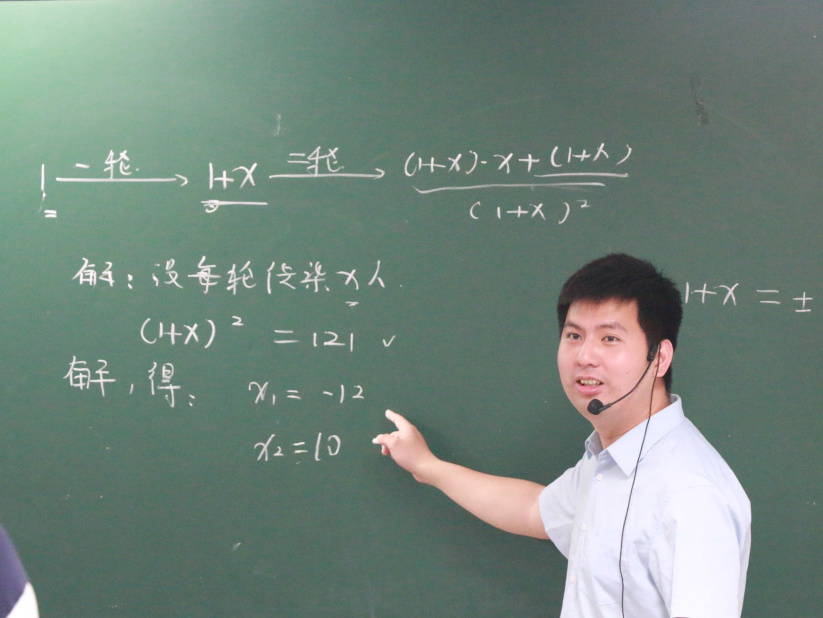 1 一轮 1+x 二轮 (1+x)·x+(1+x)
(1+x)²
解：设每轮传染x人.
(1+x)² = 121 ✓
解，得：x₁ = -12
x₂ = 10
1+x = ±